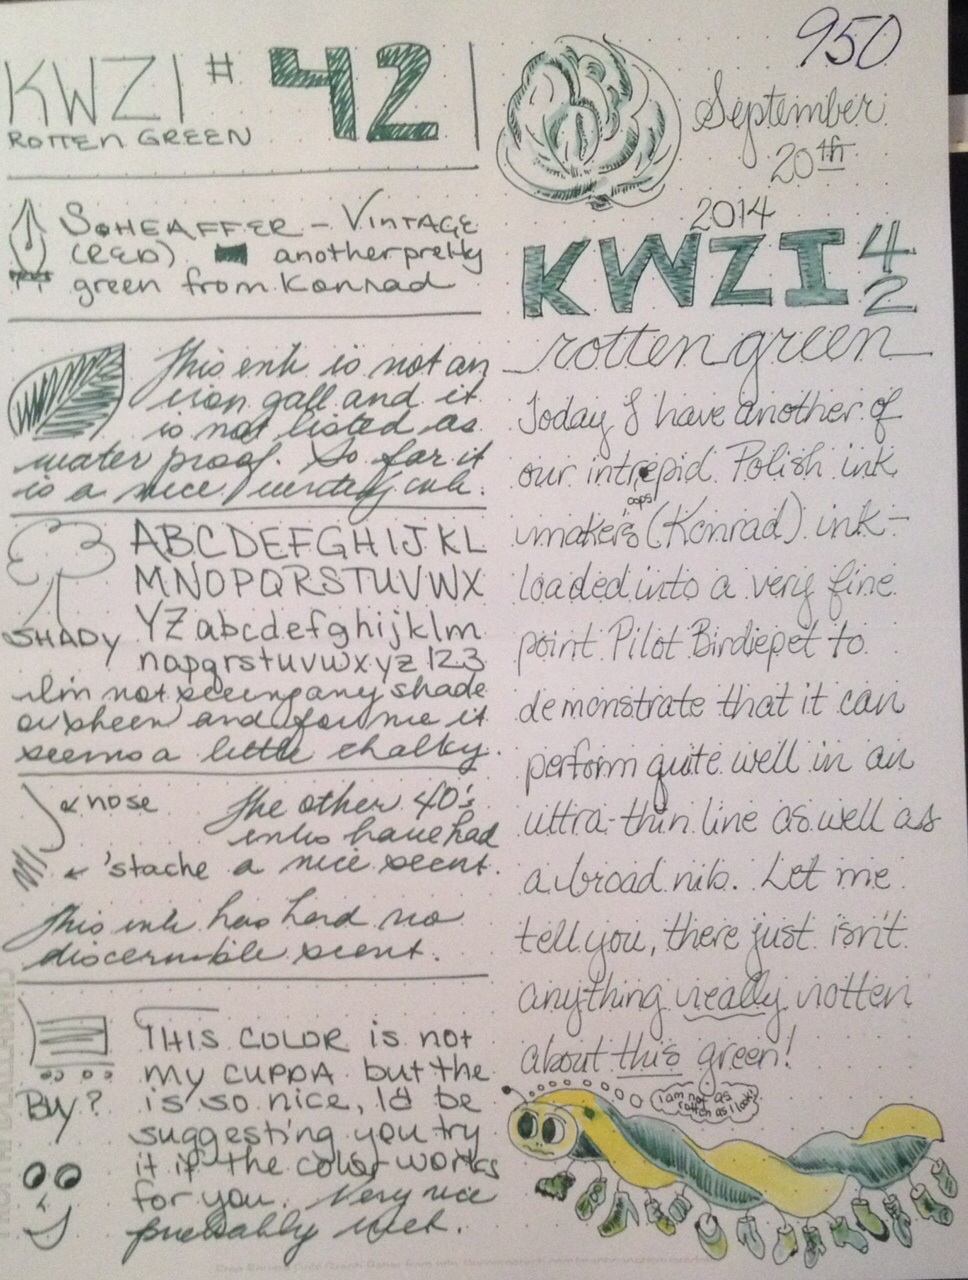 KWZI # 42
ROTTEN GREEN
SHEAFFER - VINTAGE
(RED) another pretty
green from Konrad
This ink is not an
iron gall and it
is not listed as
water proof. So far it
is a nice writing ink.
ABCDEFGHIJKL
MNOPQRSTUVWX
YZ abcdefghijklm
nopqrstuvwxyz 123
SHADY
I'm not seeing any shade
or sheen and for me it
seems a little chalky.
nose
'stache
The other 40's
inks have had
a nice scent.
This ink has had no
discernible scent.
Buy?
THIS COLOR is not
my CUPPA but the
is so nice, I'd be
suggesting you try
it if the color works
for you. Very nice
probably wet.
950
September
20th
2014
KWZI 42
rotten green
Today I have another of
our intrepid Polish ink
oops
makers (Konrad) ink-
loaded into a very fine
point Pilot Birdiepet to
demonstrate that it can
perform quite well in an
ultra-thin line as well as
a broad nib. Let me
tell you, there just isn't
anything really rotten
about this green!
I am not as
rotten as I look!